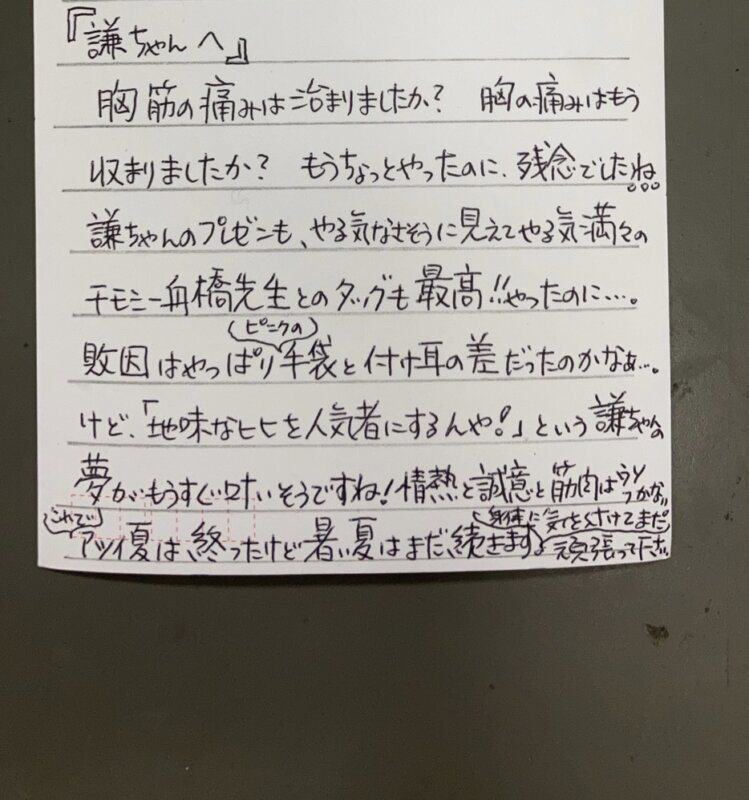 『謙ちゃんへ』
胸筋の痛みは治まりましたか? 胸の痛みはもう
収まりましたか? もうちょっとやったのに、残念でしたね。。。
謙ちゃんのプレゼンも、やる気なさそうに見えてやる気満々の
チモミー舟橋先生とのタッグも最高!!やったのに…。
(ピンクの)
敗因はやっぱり手袋と付け耳の差だったのかなぁ…。
けど、「地味なヒヒを人気者にするんや!」という謙ちゃんの
夢がもうすぐ叶いそうですね!情熱と誠意と筋肉はウソつかない
(これで) (身体に気を付けてまだ)
アツイ夏は、終ったけど暑い夏はまだ、続きますよ 頑張って下さい